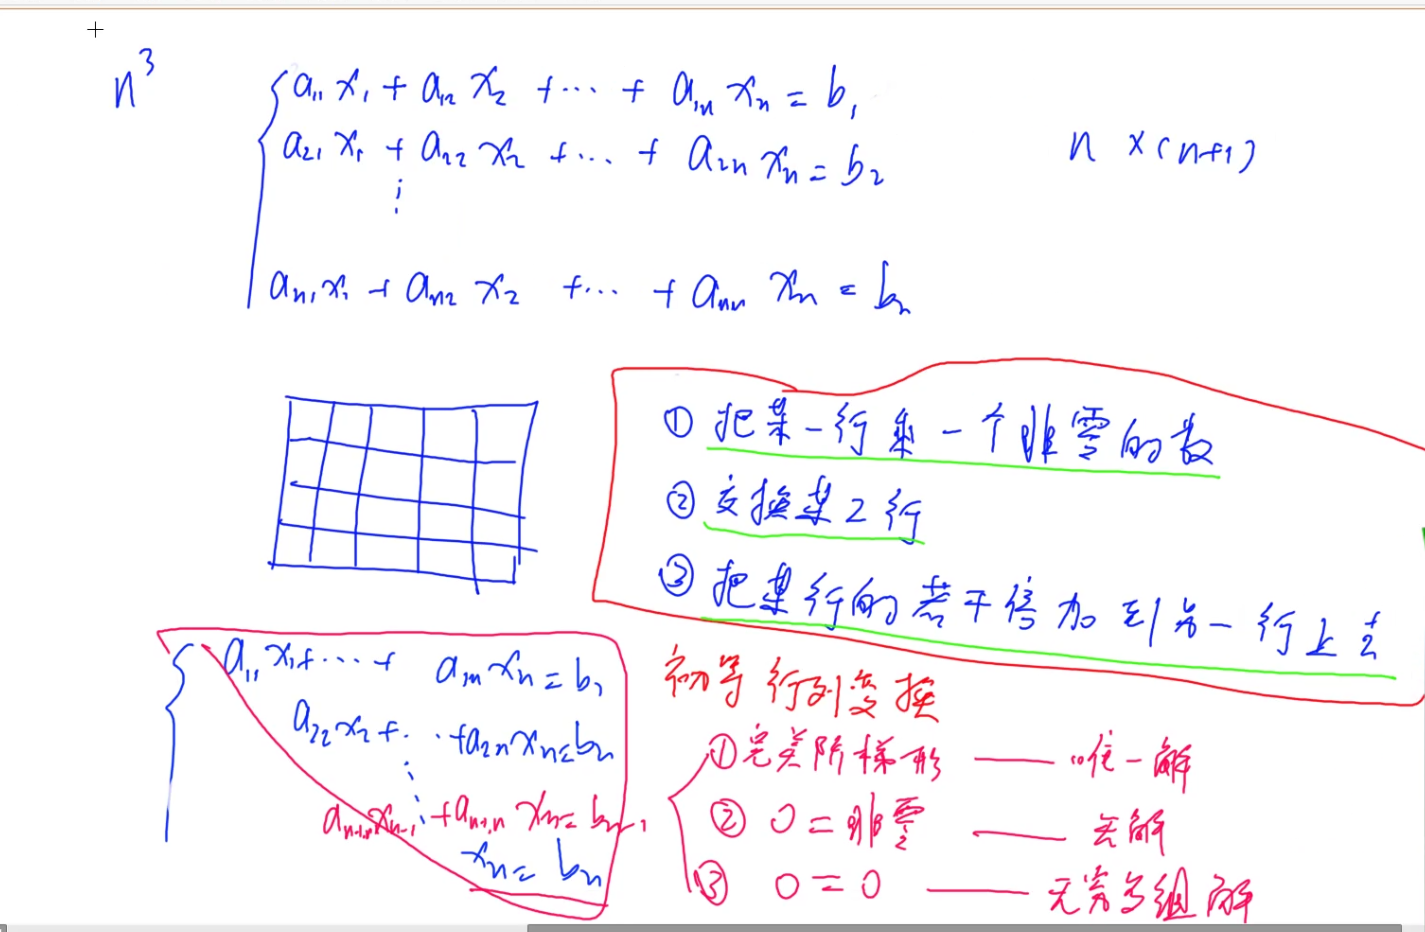 n³
a₁₁x₁ + a₁₂x₂ + ··· + a₁ₙxₙ = b₁
a₂₁x₁ + a₂₂x₂ + ··· + a₂ₙxₙ = b₂
n×(n+1)
⋮
aₙ₁x₁ + aₙ₂x₂ + ··· + aₙₙxₙ = bₙ
① 把某一行乘一个非零的数
② 交换某2行
③ 把某行的若干倍加到另一行上去
初等行列变换
a₁₁x₁+ ··· + a₁ₙxₙ = b₁
a₂₂x₂+ ··· +a₂ₙxₙ=bₙ
⋮
aₙ₋₁,ₙ₋₁xₙ₋₁+aₙ₋₁,ₙxₙ=bₙ₋₁
xₙ= bₙ
① 完美阶梯形 —— 唯一解
② 0=非零 —— 无解
③ 0=0 —— 无穷多组解